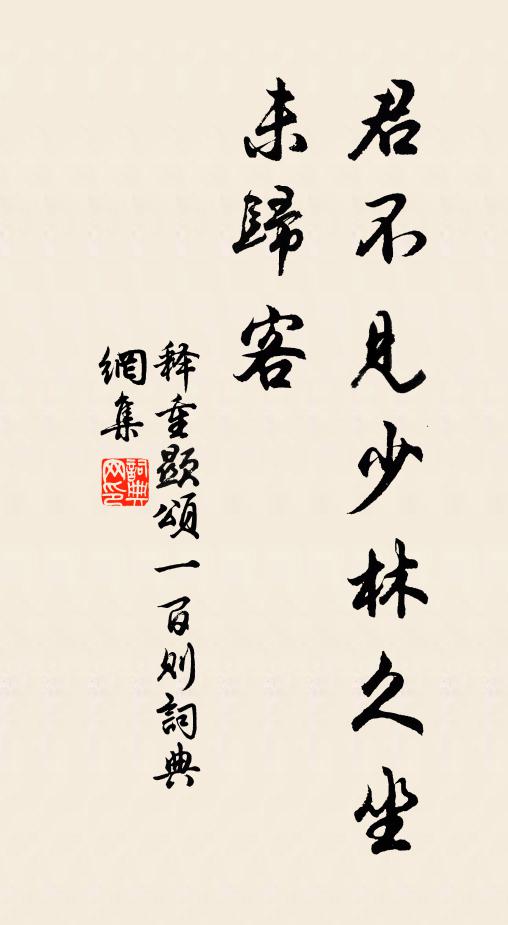 君不見少林久坐
未歸客
释重顯頌一百则詞典
網集
詞典
网印